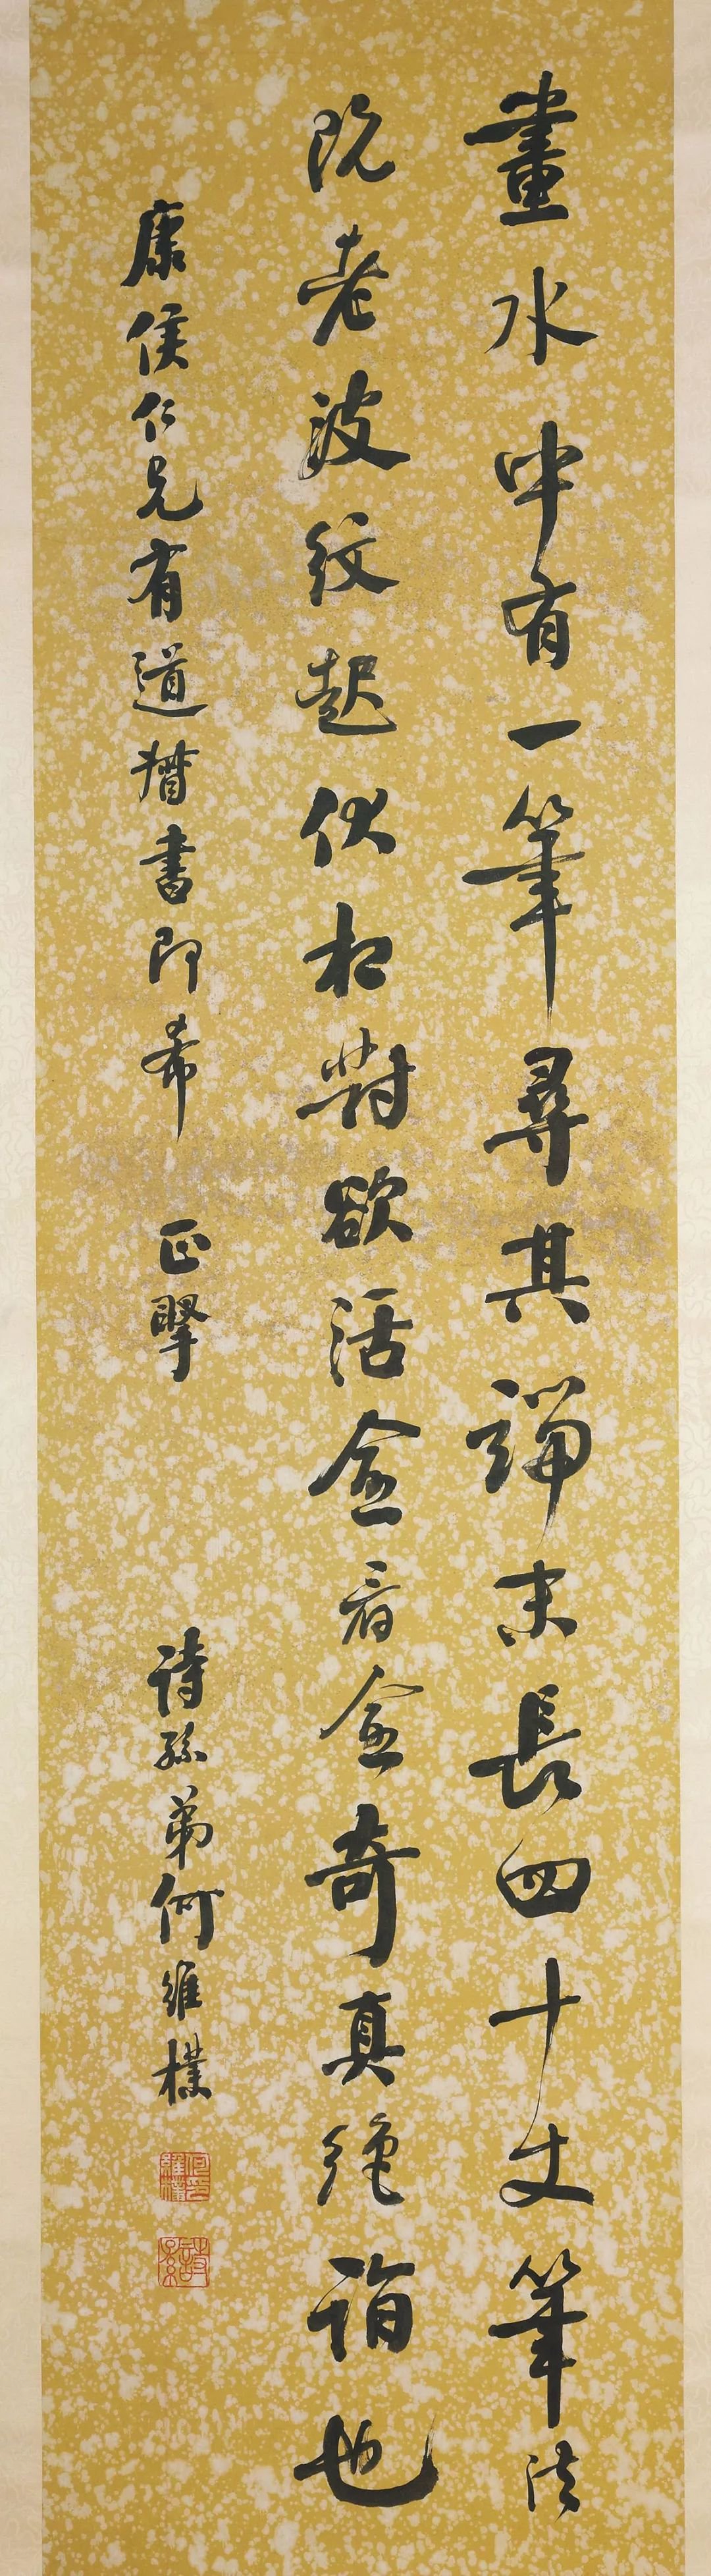 畫水中有一筆尋其端末長四十丈筆法
既老波紋起伏相對欲活僉看僉奇真絕詣也
康侯仁兄有道督書即希
正擘
詩孫弟何維樸
何維樸印
詩孫